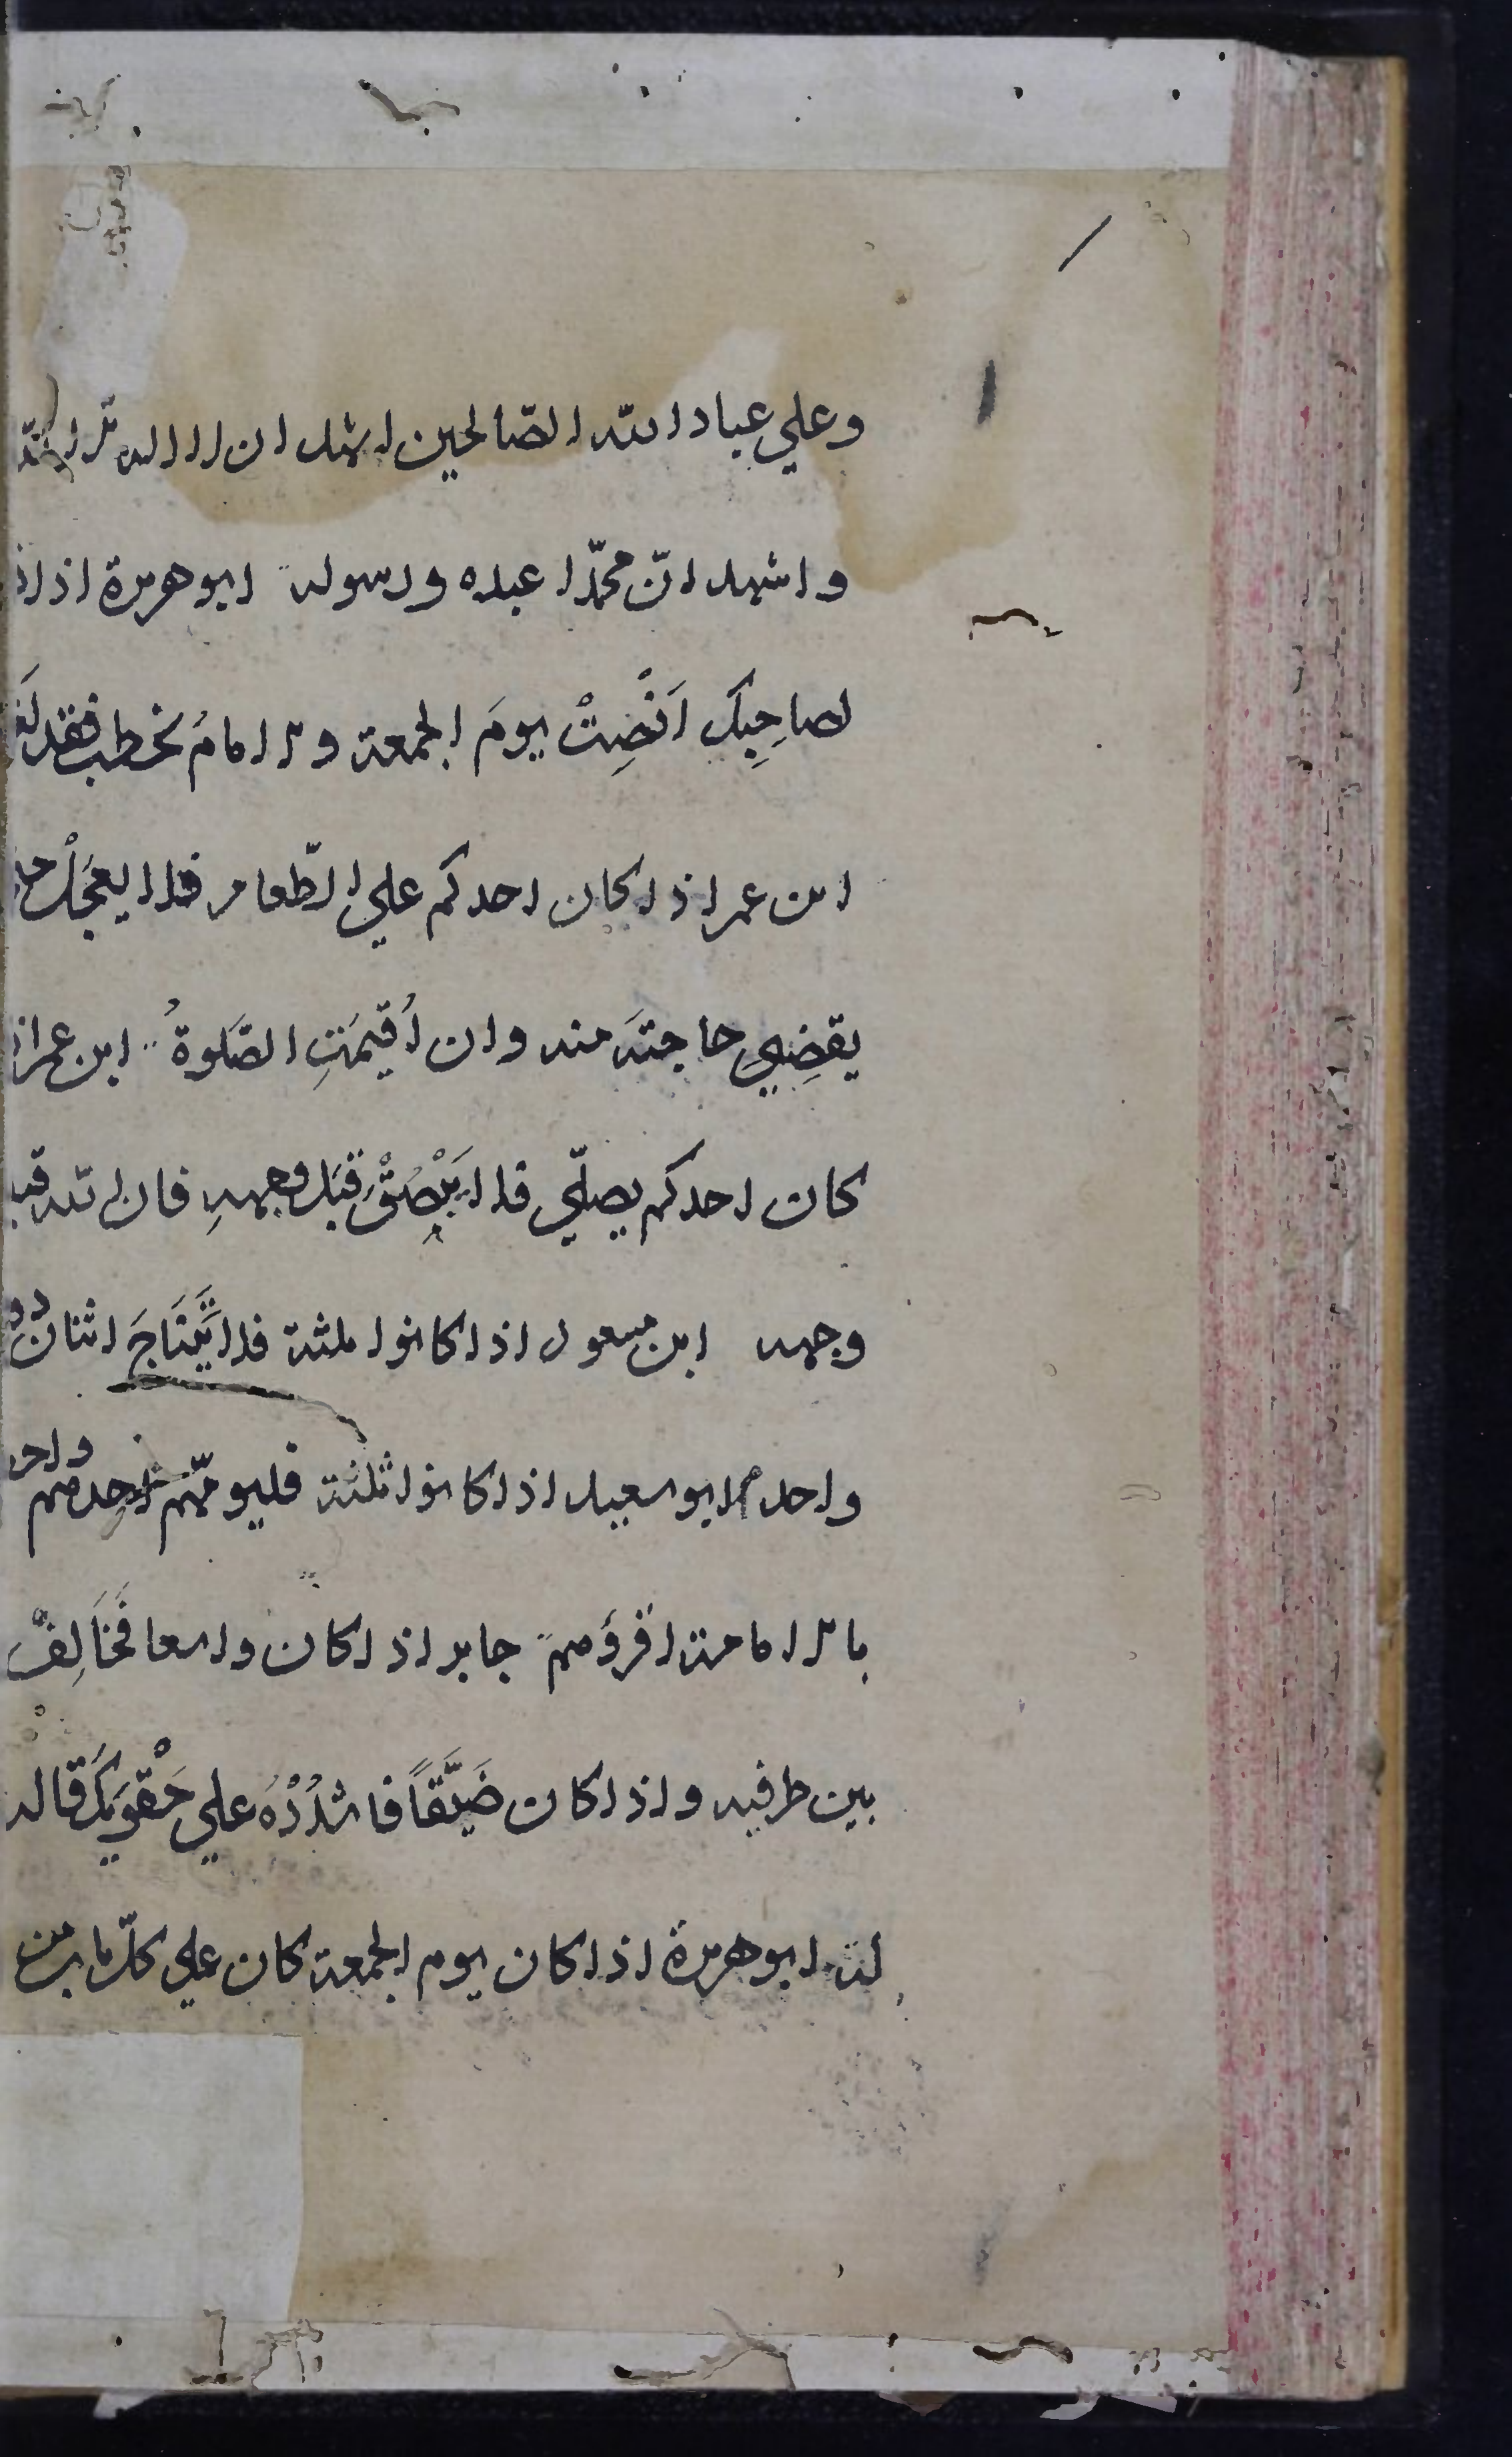 وعلي عباد الله الصّالحين اشهد ان لا اله الا الله
واشهد انّ محمّدا عبده ورسوله ابو هريرة اذا
لصاحِبِكَ اَنْصِتْ يومَ الجمعة والامامُ يخطب فقد
ابن عمر اذا كان احدكم علي الطّعام فلا يعجَلْ
يقضِيَ حاجتَه منه وان اُقيمَتِ الصَّلوةُ ابن عمر اذا
كان احدكم يصلّي فلا يَبْصُقْ قِبَلَ وجهِهِ فان الله
وجهه ابن مسعود اذا كانوا ثلثة فلا يَتَنَاجَ اثنان دون
واحد ابو سعيد اذا كانوا ثلثة فليؤمّهم احدهم واحقهم
بالامامة اقرؤهم جابر اذا كان واسعا فَخَالِفْ
بين طرفيه واذا كان ضَيِّقاً فاشْدُدْهُ علي حَقْوِكَ قاله
له ابو هريرة اذا كان يوم الجمعة كان علي كلّ باب من